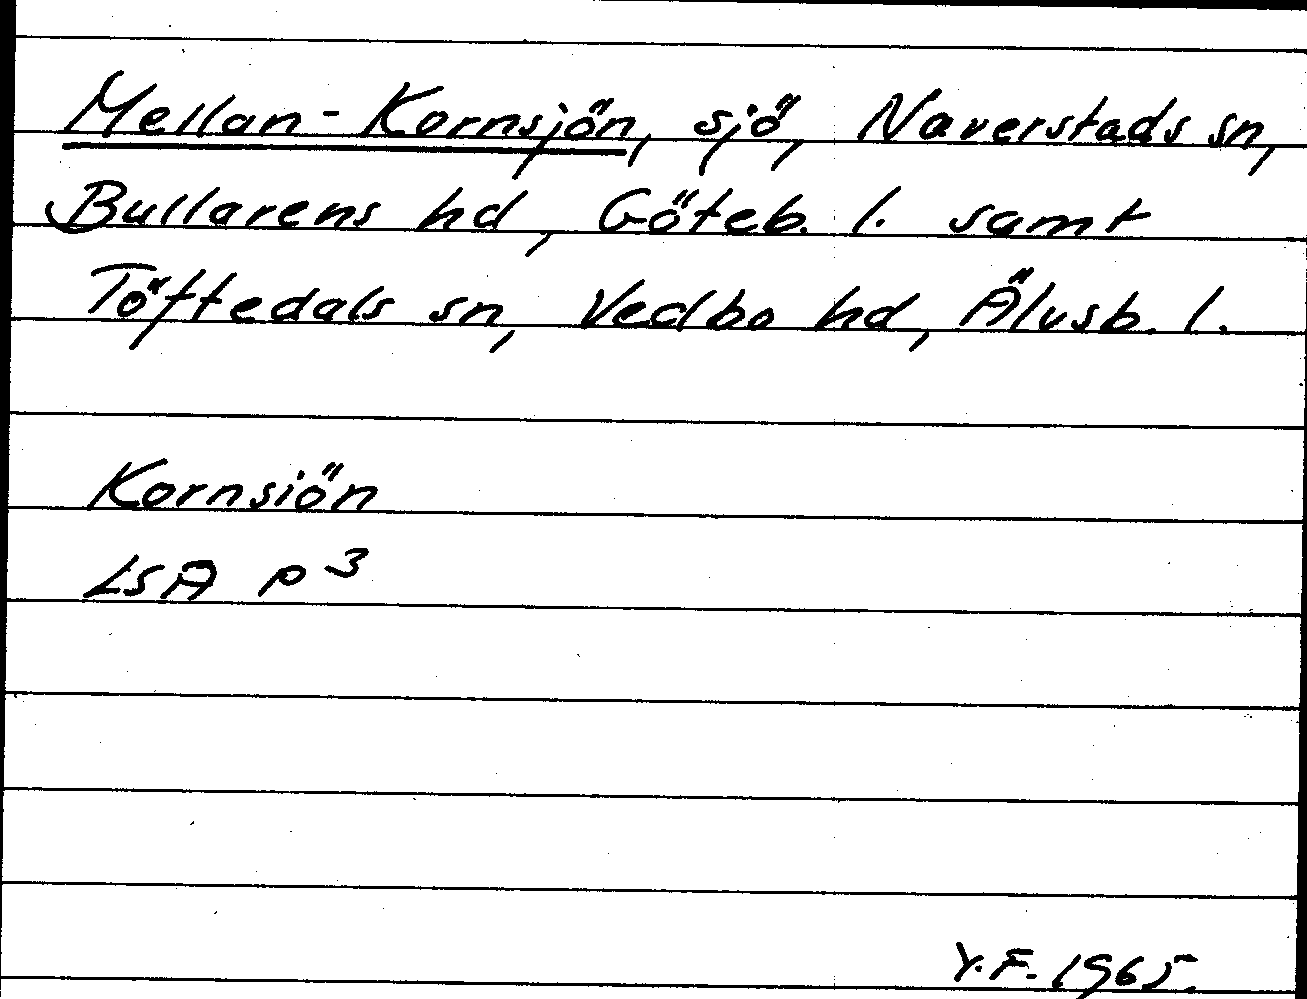 Mellan-Kornsjön, sjö, Naverstads sn,
Bullarens hd, Göteb. l. samt
Töftedals sn, Vedbo hd, Älvsb. l.
Kornsiön
LSA P³
Y.F. 1965.